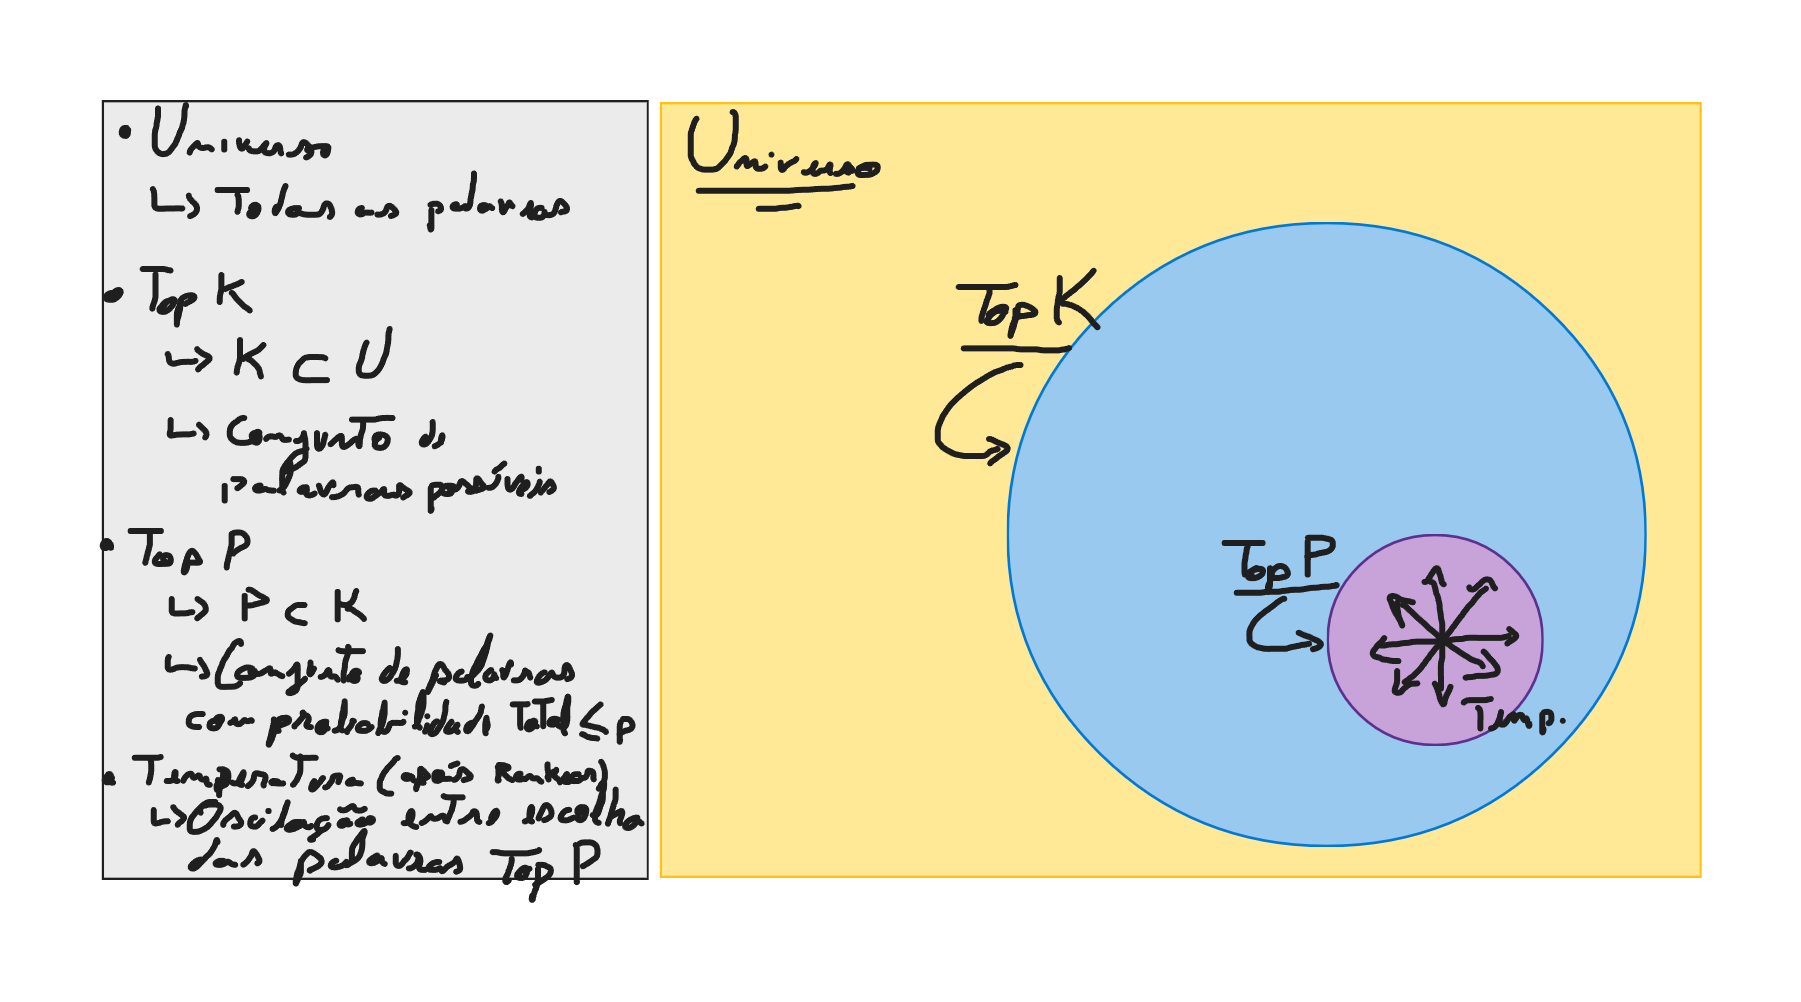 • Universo
↳ Todas as palavras
• Top K
↳ K ⊂ U
↳ Conjunto de
palavras possíveis
• Top P
↳ P ⊂ K
↳ Conjunto de palavras
com probabilidade Total ≤ p
• Temperatura (após Rankear)
↳ Oscilação entre escolha
das palavras Top P
Universo
Top K
Top P
Temp.